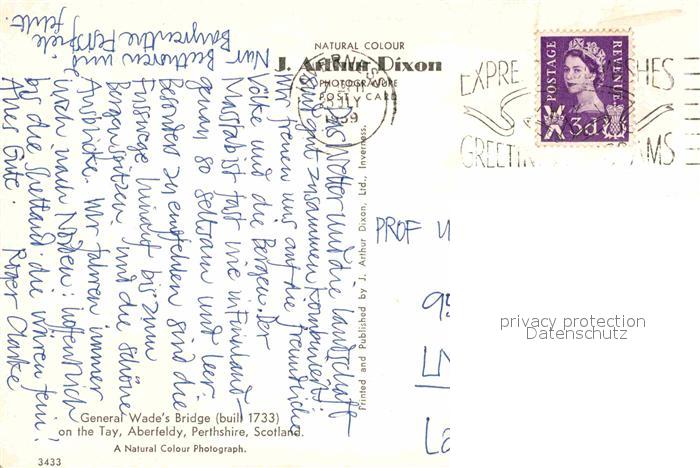 NATURAL COLOUR
J. Arthur Dixon
PHOTOGRAVURE
POST CARD
JLY
1959
EXPRE SHES
GREETIN AMS
POSTAGE
REVENUE
3d
Das Wetter und die Landschaft
sind gut zusammen kombiniert;
wir freuen uns auf die freundliche
Völke und die Bergen. Der
Masstab ist fast wie in Finnland –
genau so seltsam und leer.
Besonders zu empfehlen sind die
Fusswege hinauf bis zum
Bergenspitzen und die schöne
Ausblicke. Wir fahren immer
noch nach Norden: hoffentlich
bis die Shetland. die wären fein!
Alles Gute. Roger Clarke
Nur Beethoven und
Bayreuther Festspiele
fehlt.
Printed and Published by J. Arthur Dixon, Ltd., Inverness.
PROF
privacy protection
Datenschutz
General Wade's Bridge (built 1733)
on the Tay, Aberfeldy, Perthshire, Scotland.
A Natural Colour Photograph.
3433